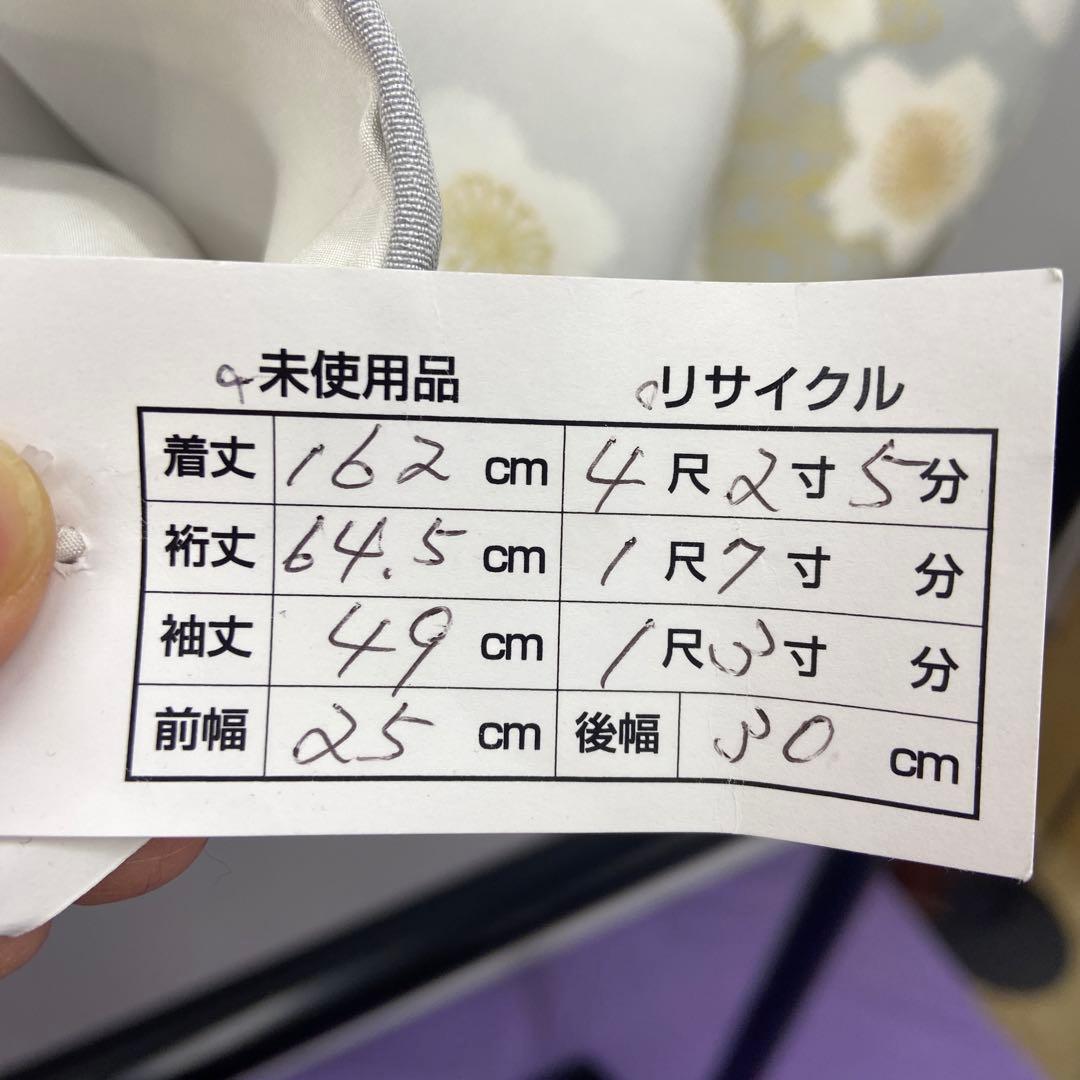 未使用品 リサイクル
着丈 162 cm 4尺2寸5分
裄丈 64.5 cm 1尺7寸 分
袖丈 49 cm 1尺3寸 分
前幅 25 cm 後幅 30 cm